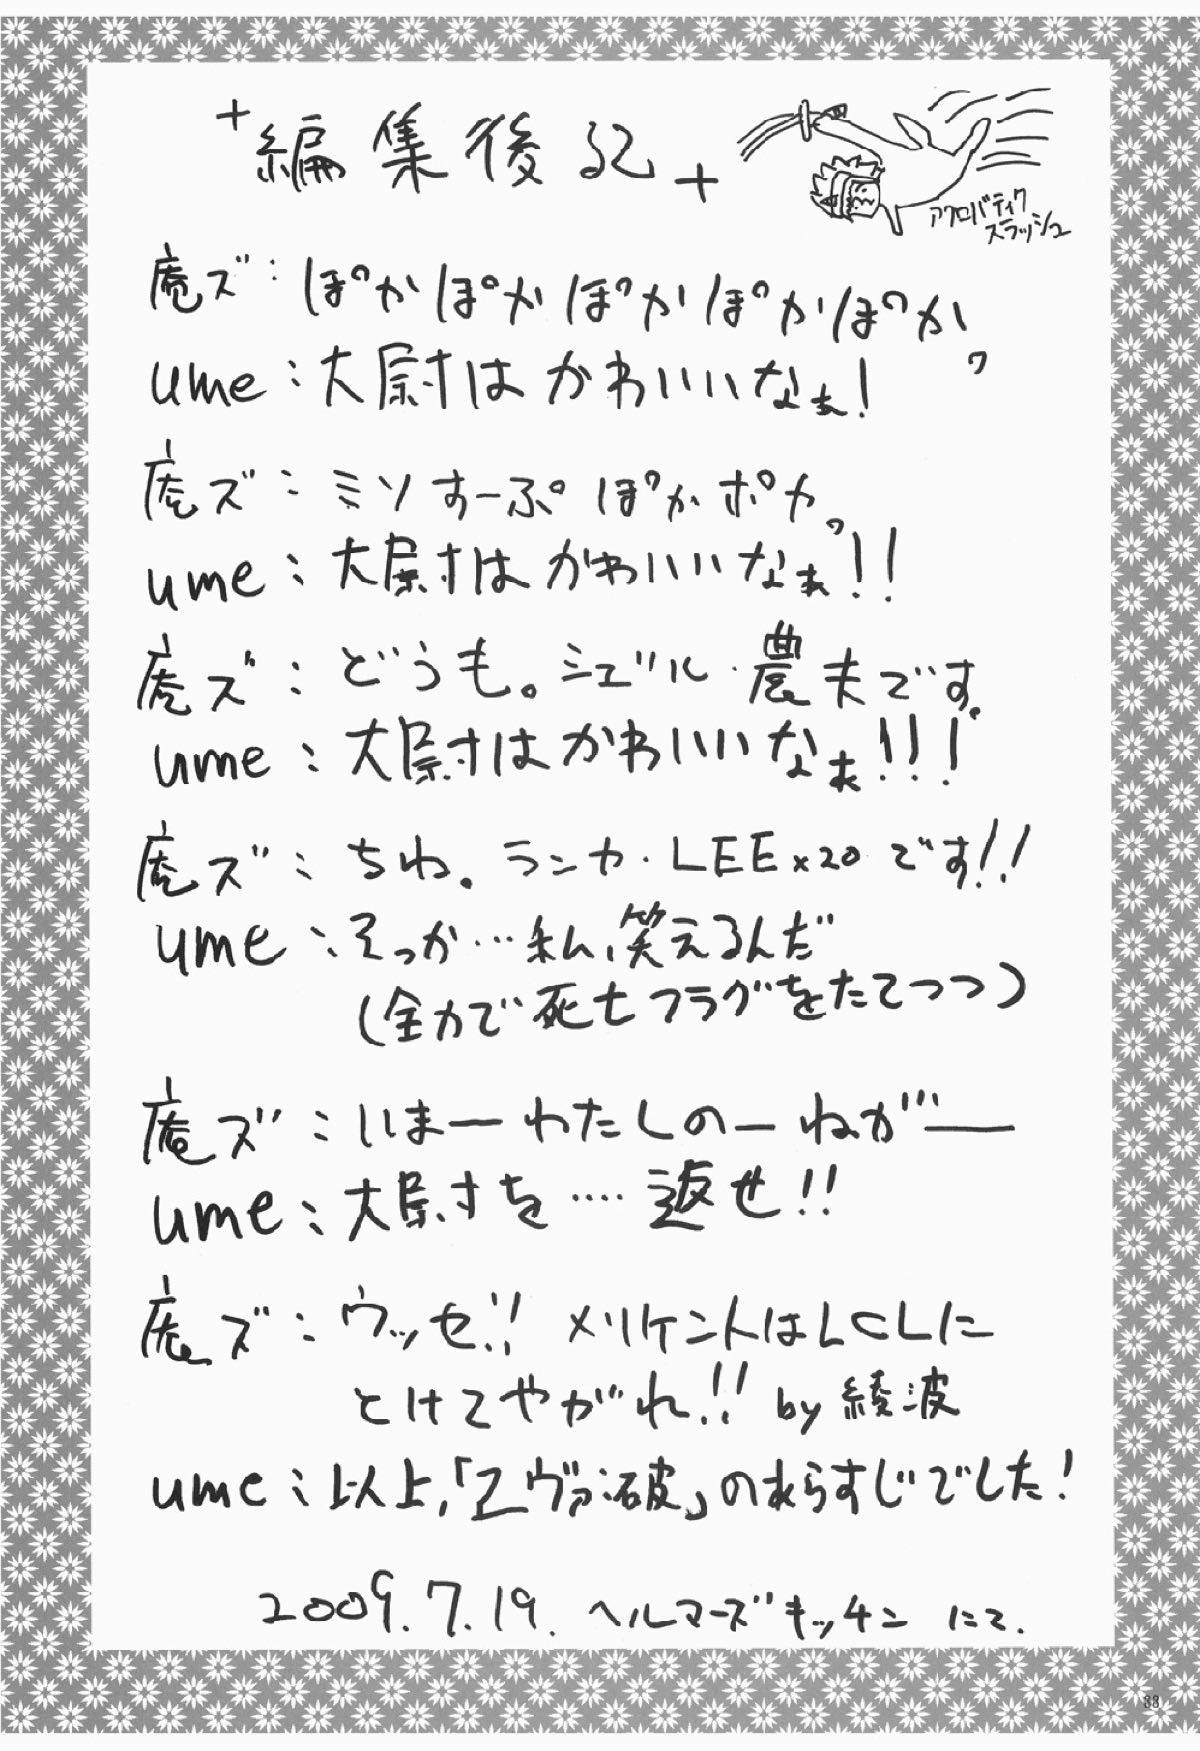 +編集後記+
アクロバティク
スラッシュ
庵ズ:ぽかぽかぽかぽかぽか。
ume:大尉はかわいいなぁ!
庵ズ:ミソすーぷぽかポカ。
ume:大尉はかわいいなぁ!!
庵ズ:どうも。シェゾル・農夫です。
ume:大尉はかわいいなぁ!!!
庵ズ:ちわ。ランカ・LEE×20です!!
ume:そっか…私、笑えるんだ
(全力で死亡フラグをたてつつ)
庵ズ:いまーわたしのーねがー
ume:大尉を‥‥返せ!!
庵ズ:ウッセ!! メリケントはLCLに
とけてやがれ!! by 綾波
ume:以上、「ヱヴァ:破」のあらすじでした!
2009.7.19. ヘルマーズキッチンにて.
33